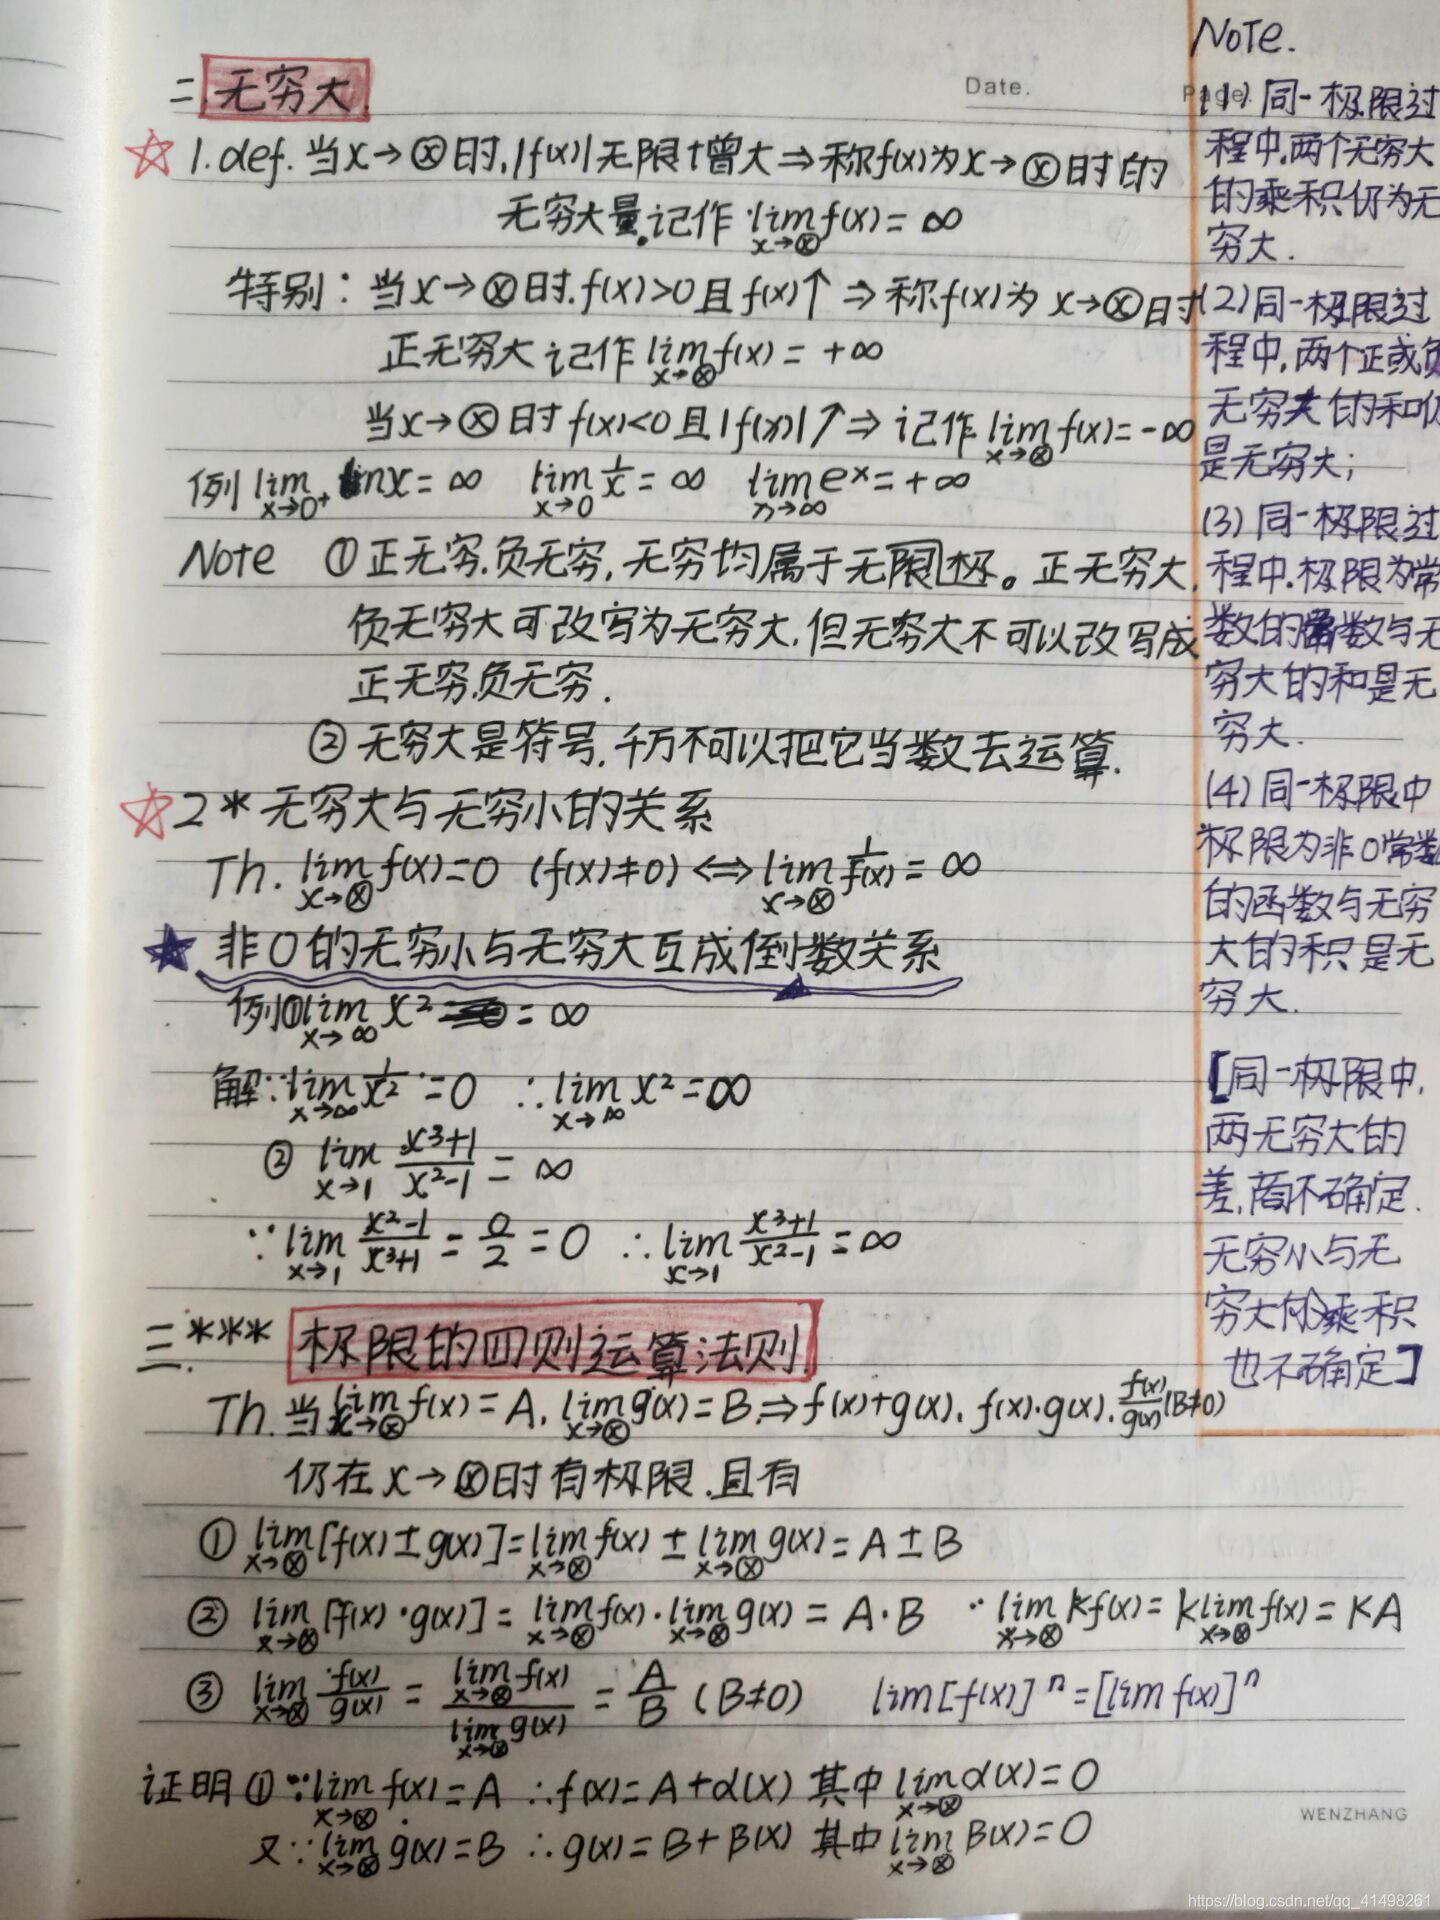 Date.
二.无穷大.
☆ 1.def.当x→ⓧ时,|f(x)|无限增大⇒称f(x)为x→ⓧ时的
无穷大量.记作 lim f(x)=∞
x→ⓧ
特别：当x→ⓧ时.f(x)>0且f(x)↑ ⇒称f(x)为 x→ⓧ时
正无穷大 记作 lim f(x)= +∞
x→ⓧ
当x→ⓧ时 f(x)<0且|f(x)|↗⇒ 记作 lim f(x)=-∞
x→ⓧ
例 lim lnx=∞ lim 1/x=∞ lim eˣ=+∞
x→0⁺ x→0 x→∞
Note ①正无穷.负无穷,无穷均属于无限极。正无穷大,
负无穷大可改写为无穷大.但无穷大不可以改写成
正无穷.负无穷.
②无穷大是符号.千万不可以把它当数去运算.
☆2*无穷大与无穷小的关系
Th. lim f(x)=0 (f(x)≠0)⇔lim 1/f(x)=∞
x→ⓧ x→ⓧ
★ 非0的无穷小与无穷大互成倒数关系
例①lim x² =∞
x→∞
解:∵lim 1/x²=0 ∴lim x²=∞
x→∞ x→∞
② lim (x³+1)/(x²-1)=∞
x→1
∵lim (x²-1)/(x³+1)=0/2=0 ∴lim (x³+1)/(x²-1)=∞
x→1 x→1
三.*** 极限的四则运算法则.
Th.当lim f(x)=A, lim g(x)=B,⇒f(x)+g(x), f(x)·g(x), f(x)/g(x)(B≠0)
x→ⓧ x→ⓧ
仍在x→ⓧ时有极限.且有
① lim[f(x)±g(x)]=lim f(x)±lim g(x)=A±B
x→ⓧ x→ⓧ x→ⓧ
② lim[f(x)·g(x)]=lim f(x)·lim g(x)=A·B ∵lim kf(x)=klim f(x)=KA
x→ⓧ x→ⓧ x→ⓧ x→ⓧ x→ⓧ
③ lim f(x)/g(x) = lim f(x)/lim g(x) = A/B (B≠0) lim[f(x)]ⁿ=[lim f(x)]ⁿ
x→ⓧ x→ⓧ x→ⓧ
证明①∵lim f(x)=A ∴f(x)=A+α(x) 其中 lim α(x)=0
x→ⓧ x→ⓧ
又∵lim g(x)=B ∴g(x)=B+B(x) 其中 lim B(x)=0
x→ⓧ x→ⓧ
Note.
(1)同一极限过
程中,两个无穷大
的乘积仍为无
穷大.
(2)同一极限过
程中,两个正或负
无穷大的和仍
是无穷大;
(3)同一极限过
程中.极限为常
数的函数与无
穷大的和是无
穷大.
(4)同一极限中
极限为非0常数
的函数与无穷
大的积是无
穷大.
[同一极限中,
两无穷大的
差,商不确定.
无穷小与无
穷大的乘积
也不确定]
WENZHANG
https://blog.csdn.net/qq_41498261